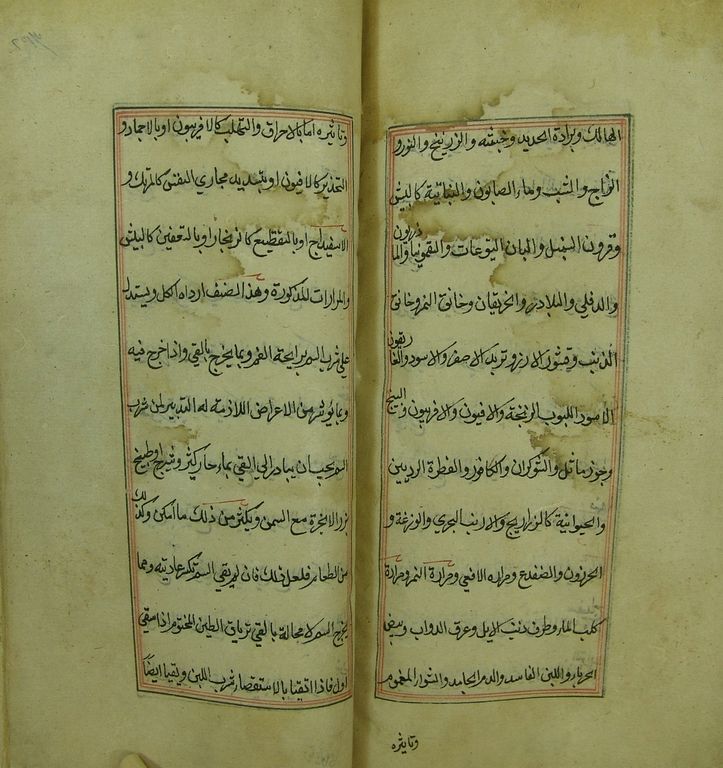 الهالك وبرادة الحديد وخبثه والزرنيخ والنورة و
الزاج والشب وماء الصابون والنباتية كالبيش
وقرون السنبل والبان اليتوعات والسقمونيا والما
زريون
والدفلي والبلادر والخربقان وخانق النمر وخانق
الذئب وقشور الارز وتربد الاصفر والاسود والغا
ريقون
الاسود اللبوب الزنخة والافيون والافربيون والبنج
وجوز ماثل والشوكران والكافور والفطرة الرديين
والحيوانية كالذراريح والارنب البحري والوزغة و
الحرذون والضفدع ومراره الافعي ومرارة النمر ومرارة
كلب الماء وطرف ذنب الايل وعرق الدواب وبيض
الحرباء واللبن الفاسد والدم الجامد والشواء المغموم
وتاثيره
وتاثيره اما بالاحراق والتهلب كالافربيون او بالاجماد و
التخدير كالافيون او بتسديد مجاري النفس كالمرتك و
الاسفيداج او بالتقطيع كالزنجار او بالتعفين كالبيش
والمرارات المذكورة وهذا الصنف ارداه الكل ويستدل
علي شرب السم برايحة الفم وبما يخرج بالقي واذا خرج فيه
وبما يؤثر من الاعراض اللازمة له التدبير لمن شرب
السم يجب ان يبادر الي القي بماء حار كثير وشيرج او طبيخ
بزر الانجرة مع السمن ويكثر من ذلك ما امكن وكذلك
من الطعام فلعل ذلك فان لم يقي السم تكسر عاديته ومما
يخرج السم لا محالة بالقي ترياق الطين المختوم اذا سقي
اول فاذا اتقيا بالاستقصاء شرب اللبن ويقيا ايضاً